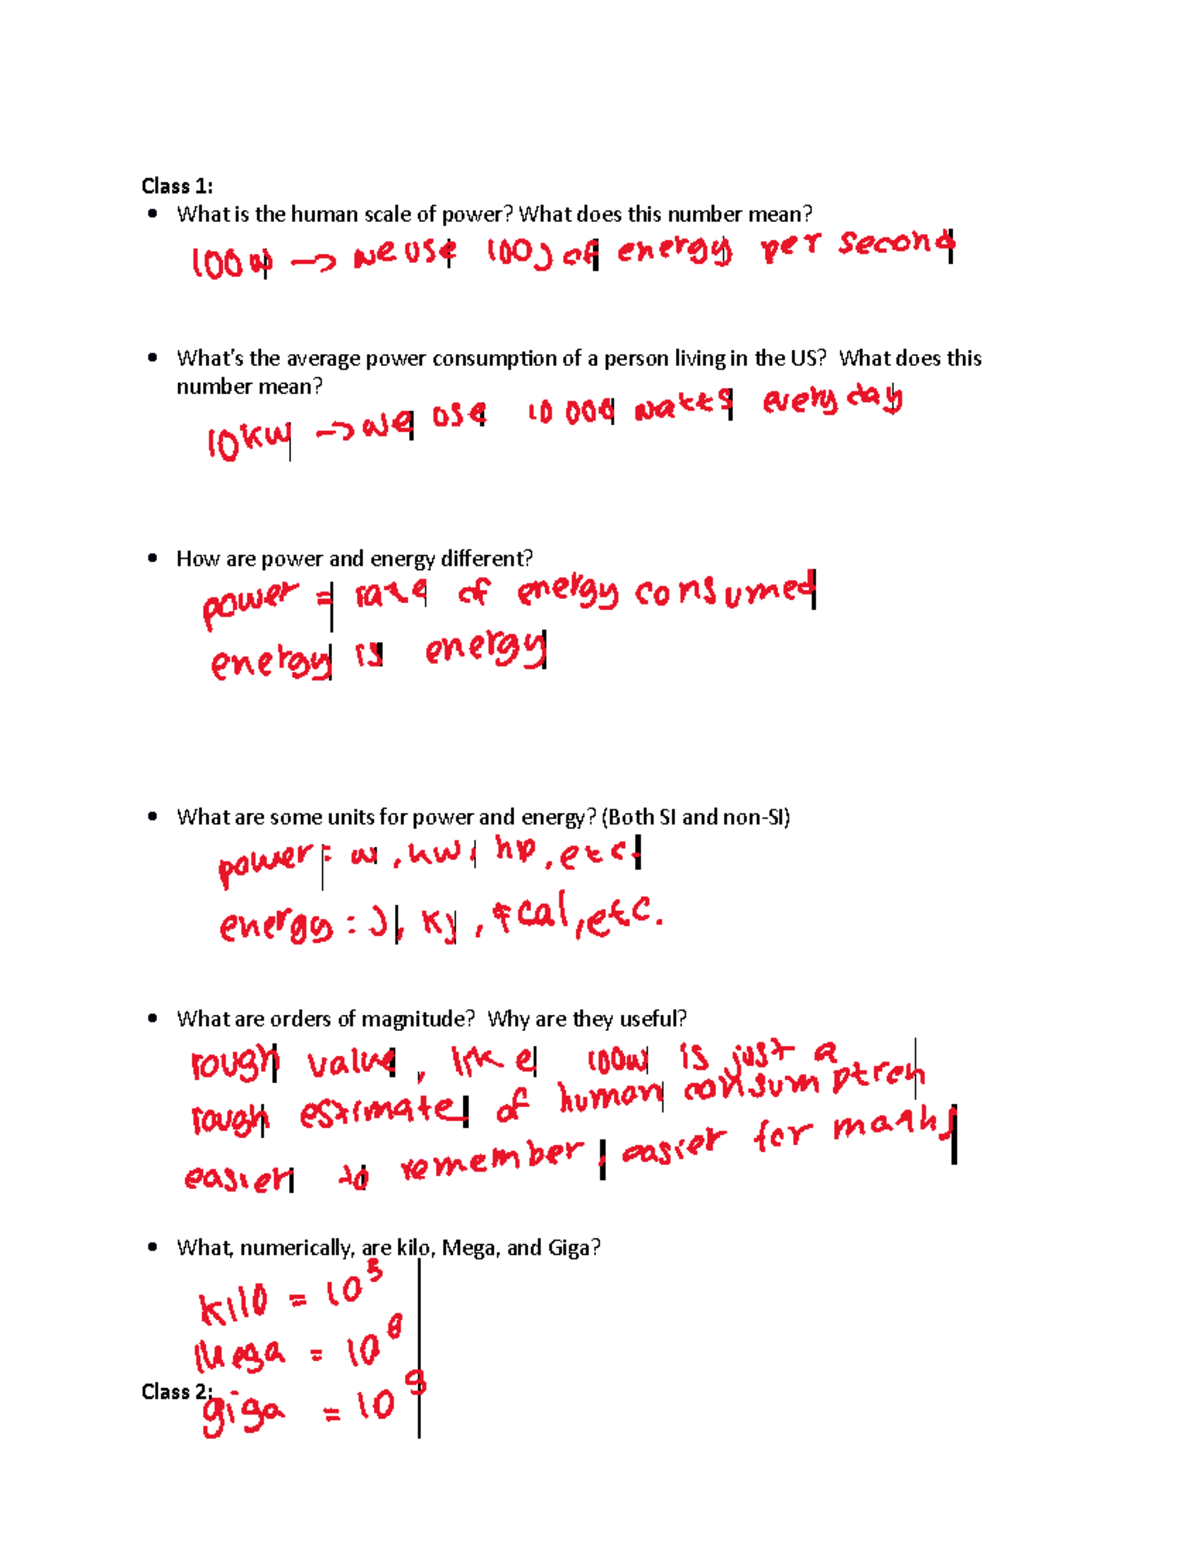 Class 1:
• What is the human scale of power? What does this number mean?
100W → we use 100J of energy per second
• What's the average power consumption of a person living in the US? What does this
number mean?
10kW → we use 10 000 watts every day
• How are power and energy different?
power = rate of energy consumed
energy is energy
• What are some units for power and energy? (Both SI and non-SI)
power: W, kW, hp, etc.
energy: J, kJ, cal, etc.
• What are orders of magnitude? Why are they useful?
rough value, like 100W is just a
rough estimate of human consumption
easier to remember, easier for math
• What, numerically, are kilo, Mega, and Giga?
kilo = 10³
Mega = 10
Class 2:
giga = 10⁹